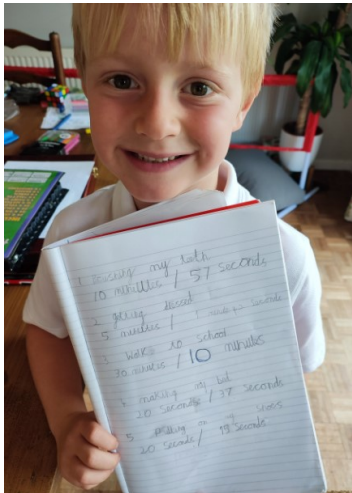 1. my teth
10 minutes / 57 seconds
2 getting
5 minutes / 1 seconds
3 walk to school
30 minutes / 10 minutes
4 making my bed
20 seconds / 37 seconds
5. putting on my shoes
20 seconds / 19 seconds